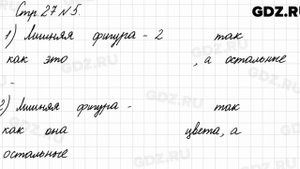 Стр. 27 №5.
GDZ.RU
1) Лишняя фигура - 2 так
как это , а остальные
-
2) Лишняя фигура - так
как она цвета, а
остальные
GDZ.RU